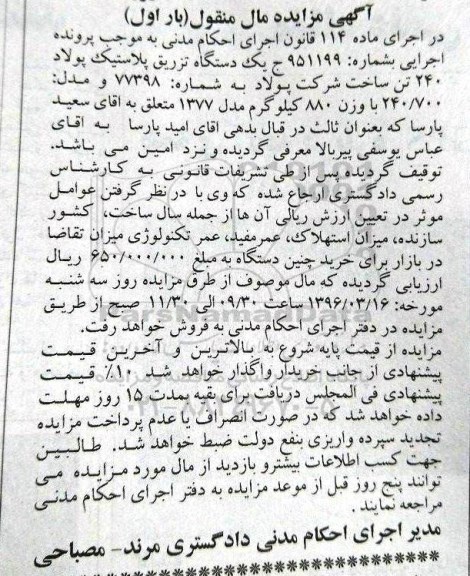 آگهی مزایده مال منقول(بار اول)
در اجرای ماده ۱۱۴ قانون اجرای احکام مدنی به موجب پرونده
اجرایی بشماره: ۹۵۱۱۹۹ ج یک دستگاه تزریق پلاستیک پولاد
۲۴۰ تن ساخت شرکت پولاد به شماره: ۷۷۳۹۸ و مدل:
۲۴۰/۷۰۰ با وزن ۸۸۰ کیلوگرم مدل ۱۳۷۷ متعلق به اقای سعید
پارسا که بعنوان ثالث در قبال بدهی اقای امید پارسا به اقای
عباس یوسفی پیربالا معرفی گردیده و نزد امین می باشد.
توقیف گردیده پس از طی تشریفات قانونی به کارشناس
رسمی دادگستری ارجاع شده که وی با در نظر گرفتن عوامل
موثر در تعیین ارزش ریالی آن ها از جمله سال ساخت، کشور
سازنده، میزان استهلاک، عمرمفید، عمر تکنولوژی میزان تقاضا
در بازار برای خرید چنین دستگاه به مبلغ ۶۵۰/۰۰۰/۰۰۰ ریال
ارزیابی گردیده که مال موصوف از طرق مزایده روز سه شنبه
مورخه: ۱۳۹۶/۰۳/۱۶ ساعت ۰۹/۳۰ الی ۱۱/۳۰ صبح از طریق
مزایده در دفتر اجرای احکام مدنی به فروش خواهد رفت.
مزایده از قیمت پایه شروع به بالاترین و آخرین قیمت
پیشنهادی از جانب خریدار واگذار خواهد شد ۱۰٪ قیمت
پیشنهادی فی المجلس دریافت برای بقیه بمدت ۱۵ روز مهلت
داده خواهد شد که در صورت انصراف یا عدم پرداخت مزایده
تجدید سپرده واریزی بنفع دولت ضبط خواهد شد. طالبین
جهت کسب اطلاعات بیشترو بازدید از مال مورد مزایده می
توانند پنج روز قبل از موعد مزایده به دفتر اجرای احکام مدنی
مراجعه نمایند.
مدیر اجرای احکام مدنی دادگستری مرند- مصباحی
ParsNamadData